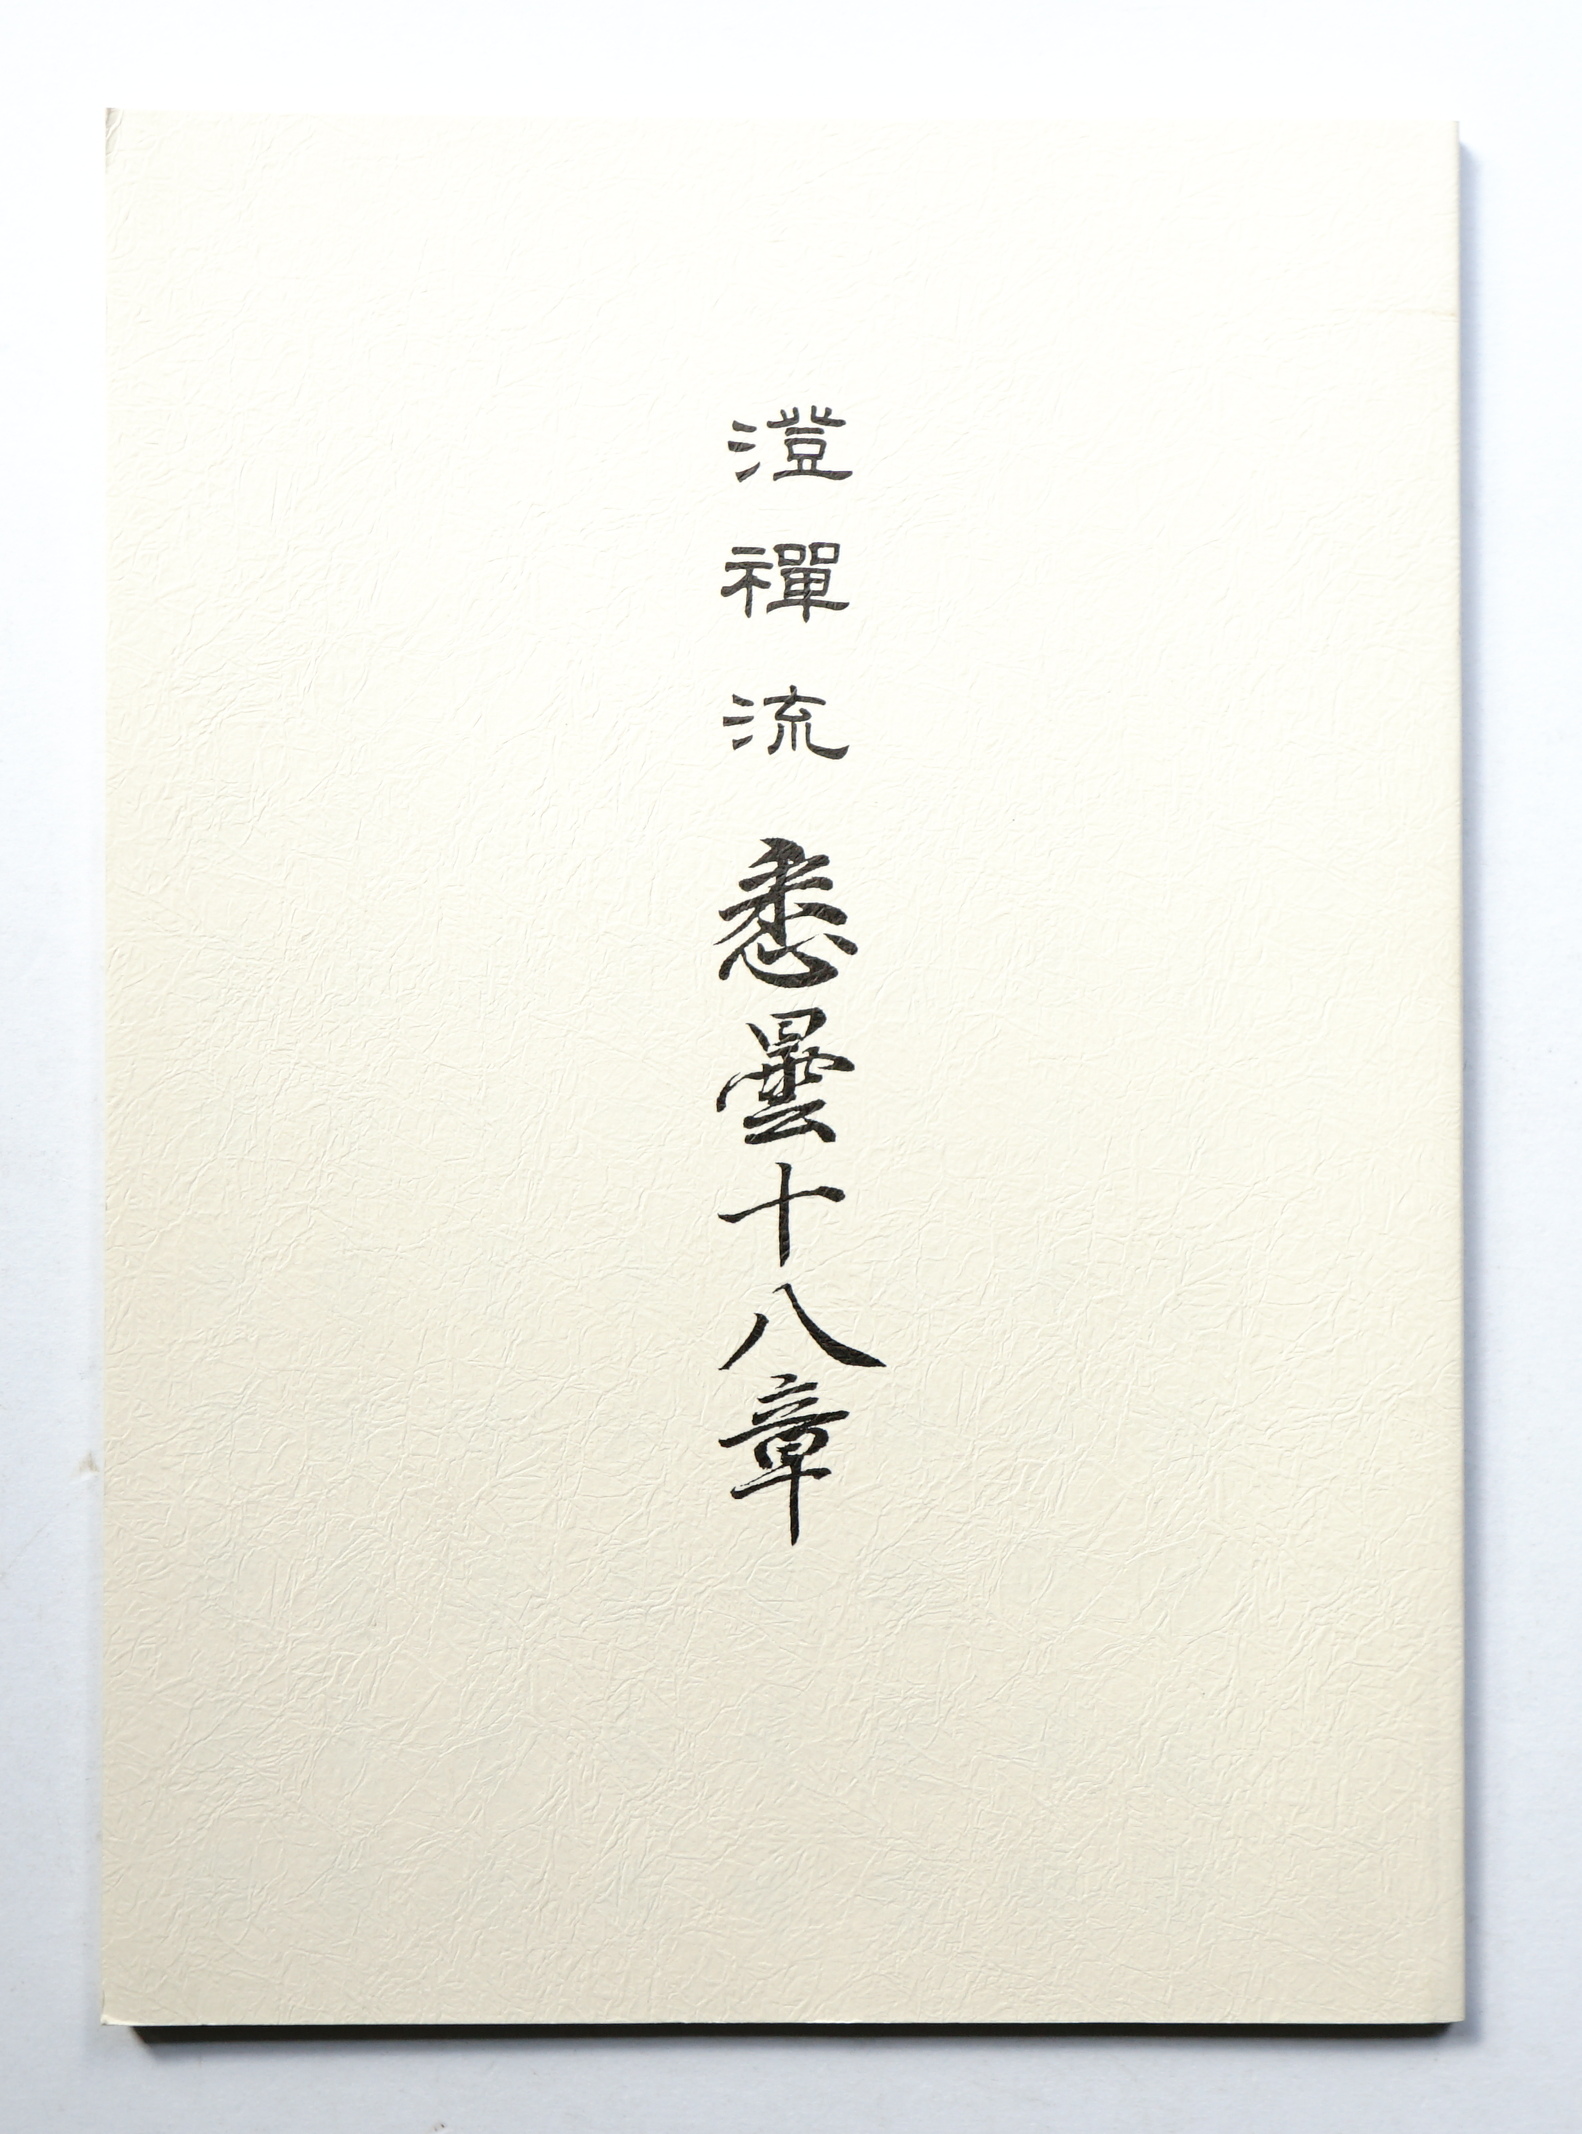 澄禪流悉曇十八章